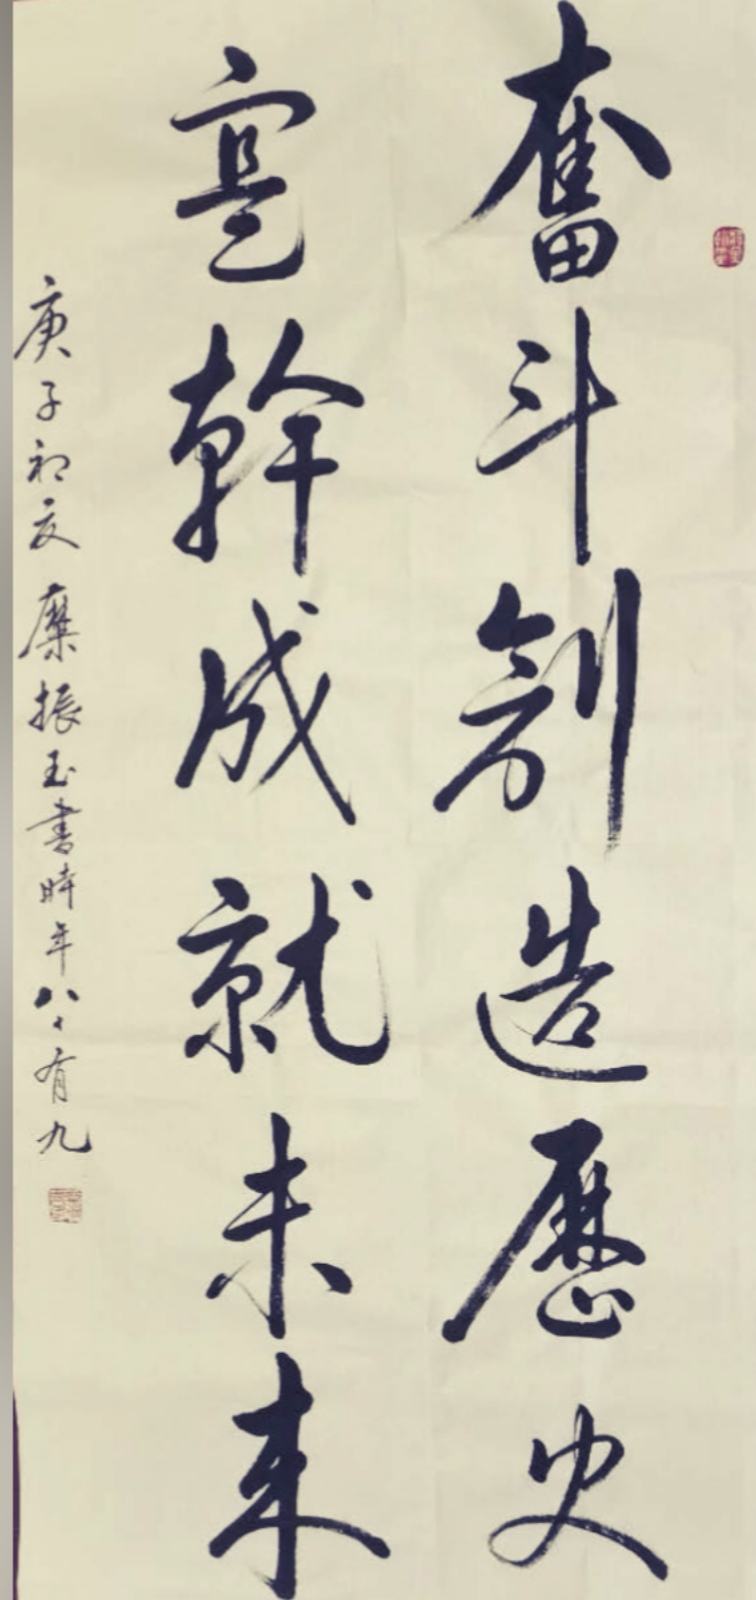 奮斗創造歷史
寔幹成就未来
庚子初夏 糜振玉書時年八十有九